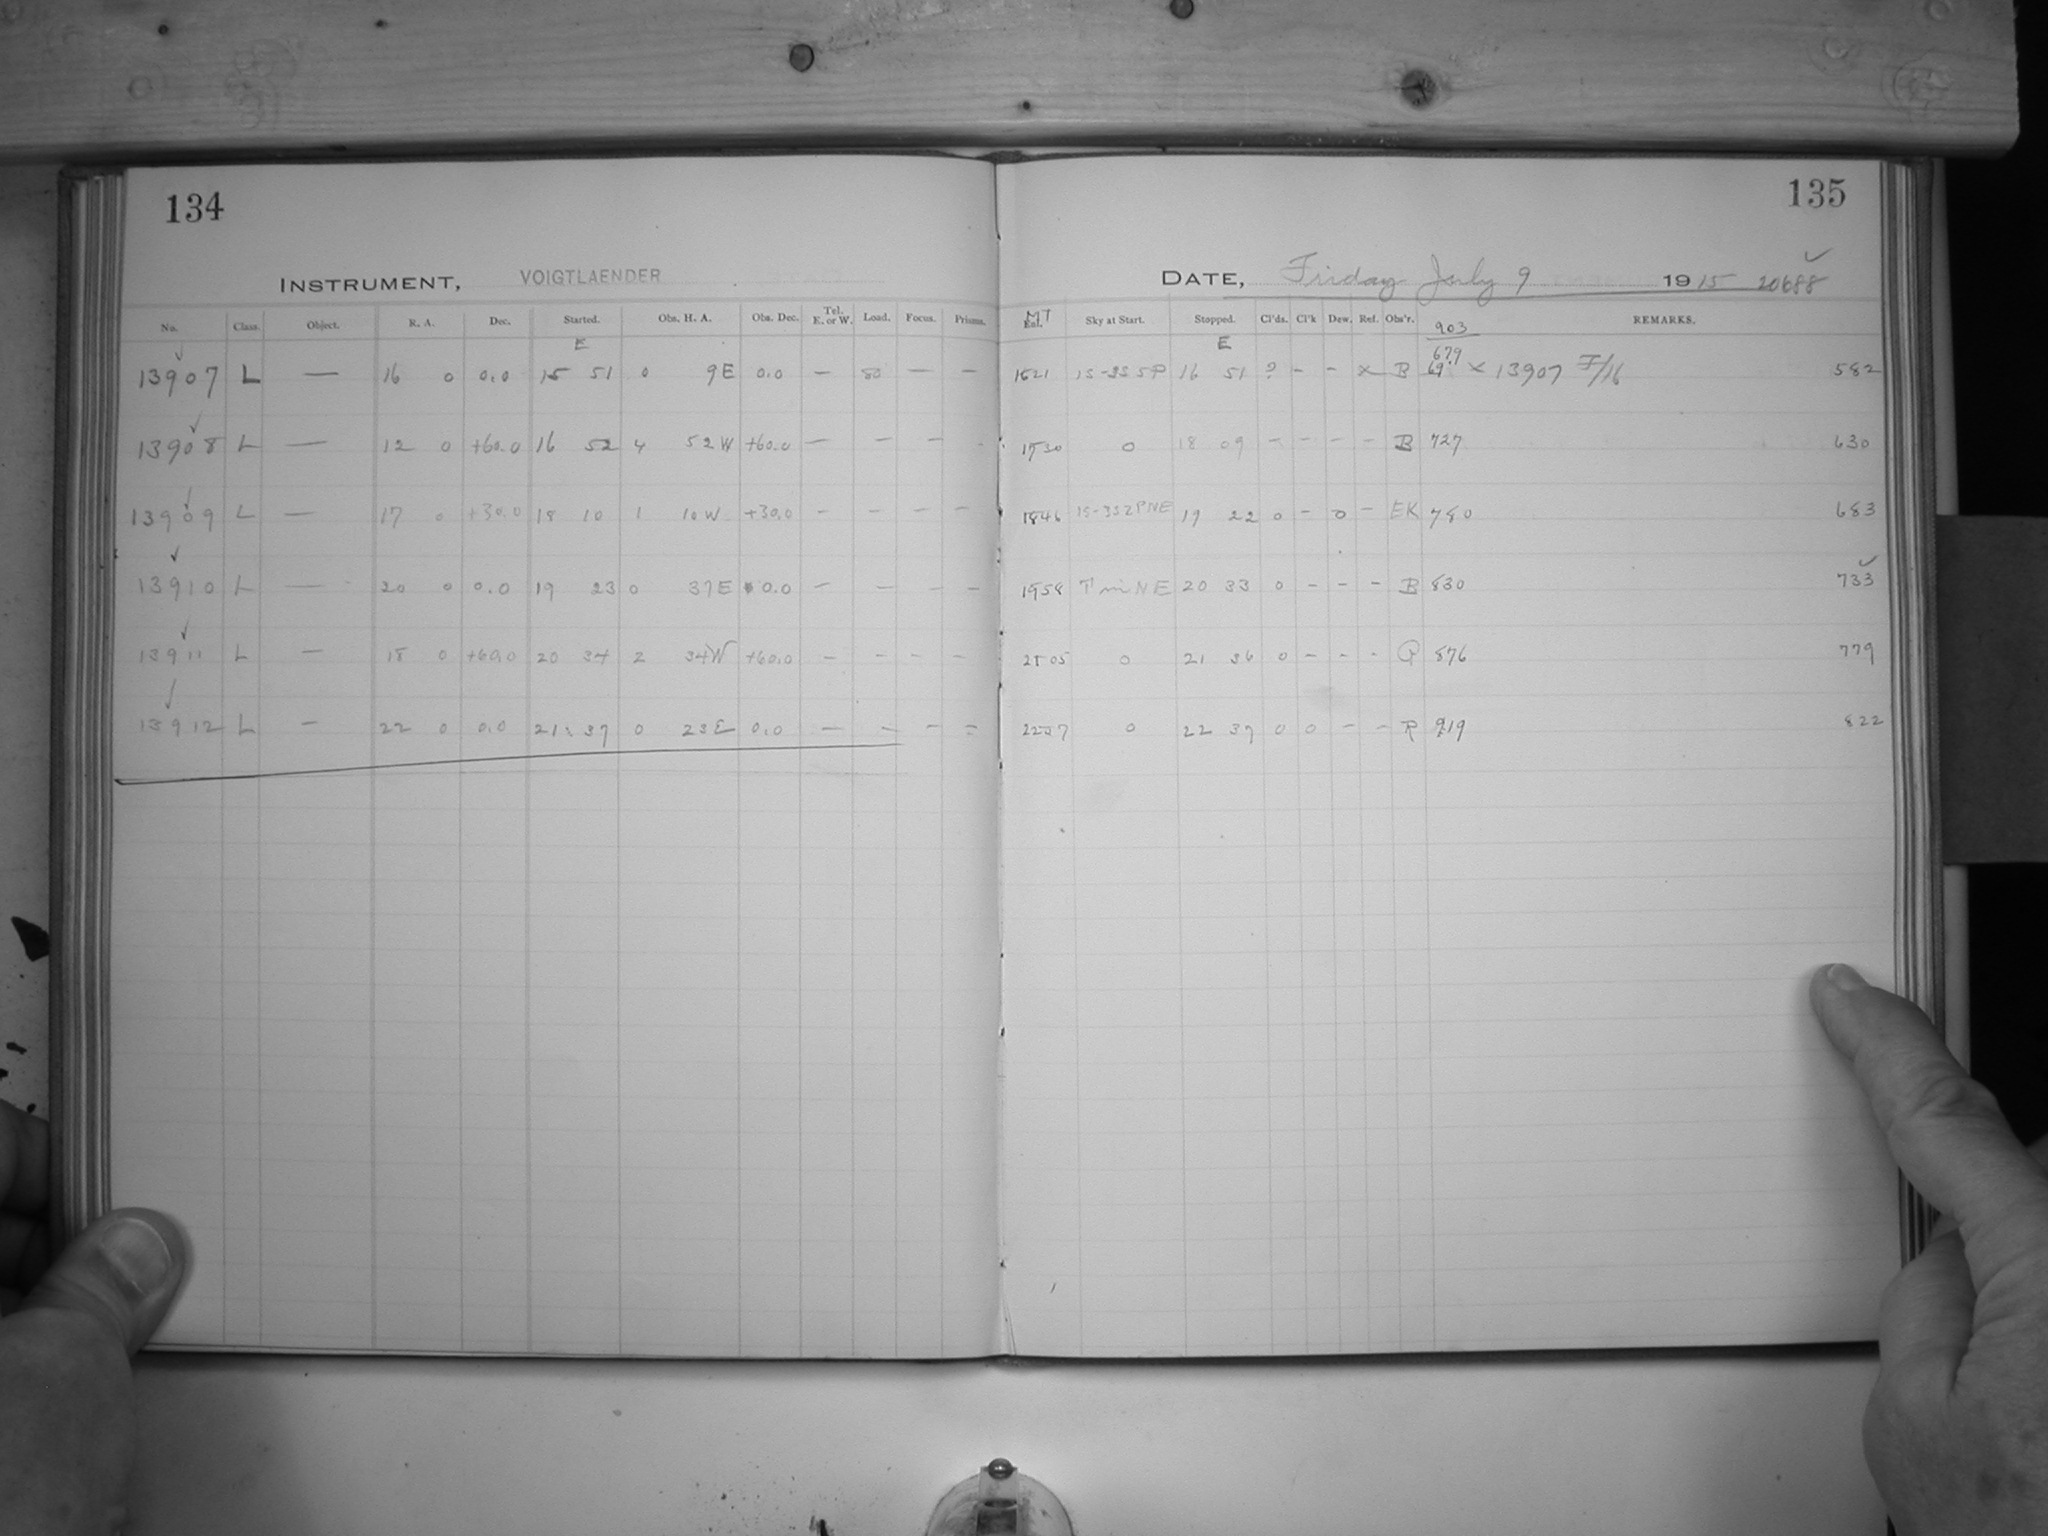 134
INSTRUMENT, VOIGTLAENDER
No. Class. Object. R. A. Dec. Started. Obs. H. A. Obs. Dec. Tel. E. or W. Load. Focus. Prisms.
E
13907 L — 16 0 0.0 15 51 0 9E 0.0 — 80 — —
13908 L — 12 0 +60.0 16 52 4 52W +60.0 — — — -
13909 L — 17 0 +30.0 18 10 1 10W +30.0 — — — —
13910 L — 20 0 0.0 19 23 0 37E 0.0 — — — —
13911 L — 18 0 +60.0 20 34 2 34W +60.0 — — — -
13912 L — 22 0 0.0 21 37 0 23E 0.0 — — — -
135
DATE, Friday July 9 1915 20688
MT Sky at Start. Stopped. Cl'ds. Cl'k Dew. Ref. Obs'r. REMARKS.
E 903
679
1621 15-35 5P 16 51 ? - - x B x 13907 F/16 582
1730 0 18 09 - - - - B 727 630
1846 19 22 0 - 0 - EK 780 683
1958 NE 20 33 0 - - - B 830 733
2105 0 21 36 0 - - - 876 779
2207 0 22 37 0 0 - - R 919 822